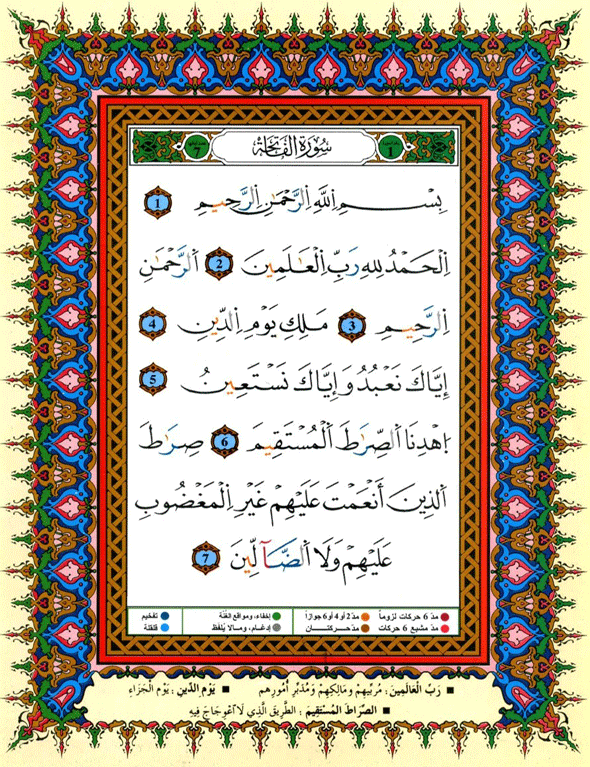 1 سُورَةُ الْفَاتِحَةِ 7
بِسْمِ اِللَّهِ اِلرَّحْمَٰنِ اِلرَّحِيمِ 1
اِلْحَمْدُ لِلهِ رَبِّ اِلْعَٰلَمِينَ 2 اَلرَّحْمَٰنِ
اِلرَّحِيمِ 3 مَلِكِ يَوْمِ اِلدِّينِ 4
إِيَّاكَ نَعْبُدُ وَإِيَّاكَ نَسْتَعِينُ 5
اِهْدِنَا اَلصِّرَٰطَ اَلْمُسْتَقِيمَ 6 صِرَٰطَ
اَلذِينَ أَنْعَمْتَ عَلَيْهِمْ غَيْرِ اِلْمَغْضُوبِ
عَلَيْهِمْ وَلَا اَلضَّآلِّينَ 7
مدّ 6 حركات لزوماً مدّ 2 أو 4 أو 6 جوازاً إخفاء، ومواقع الغُنَّة تفخيم
مدّ مشبع 6 حركات مدّ حركتان إدغام، وما لا يُلفَظ قلقلة
▪ رَبِّ الْعَالَمِينَ : مُرَبِّيهِمْ وَمَالِكِهِمْ وَمُدَبِّرِ أُمُورِهِم ▪ يَوْمِ الدِّينِ : يَوْمِ الْجَزَاءِ
▪ الصِّرَاطَ الْمُسْتَقِيمَ : الطَّرِيقَ الَّذِي لَا اعْوِجَاجَ فِيهِ